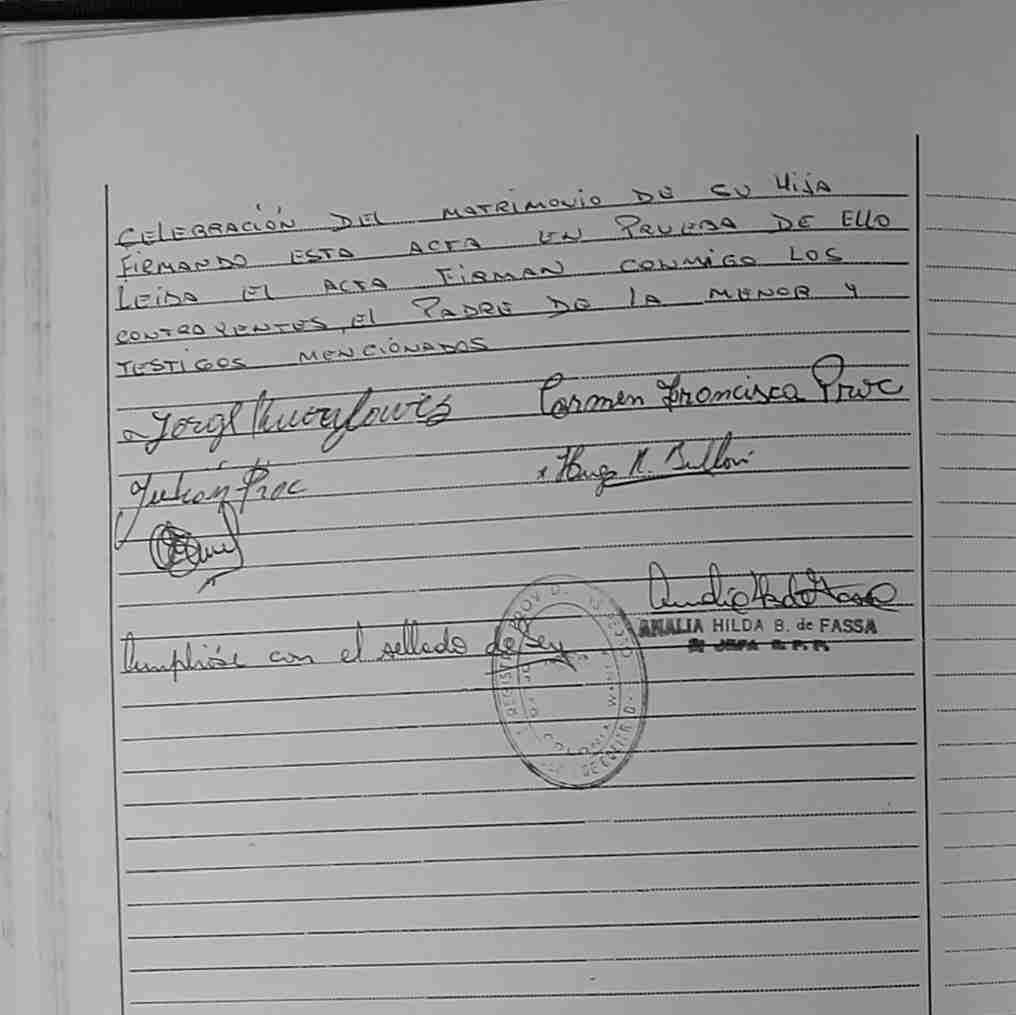 CELEBRACIÓN DEL MATRIMONIO DE SU HIJA
FIRMANDO ESTA ACTA EN PRUEBA DE ELLO
LEIDA EL ACTA FIRMAN CONMIGO LOS
CONTRAYENTES, El PADRE DE LA MENOR Y
TESTIGOS MENCIÓNADOS
Jorge
Carmen Francisca Proc
Proc
Hugo R.
ANALIA HILDA B. de FASSA
Cumplióse con el sellado de Ley
COLONIA